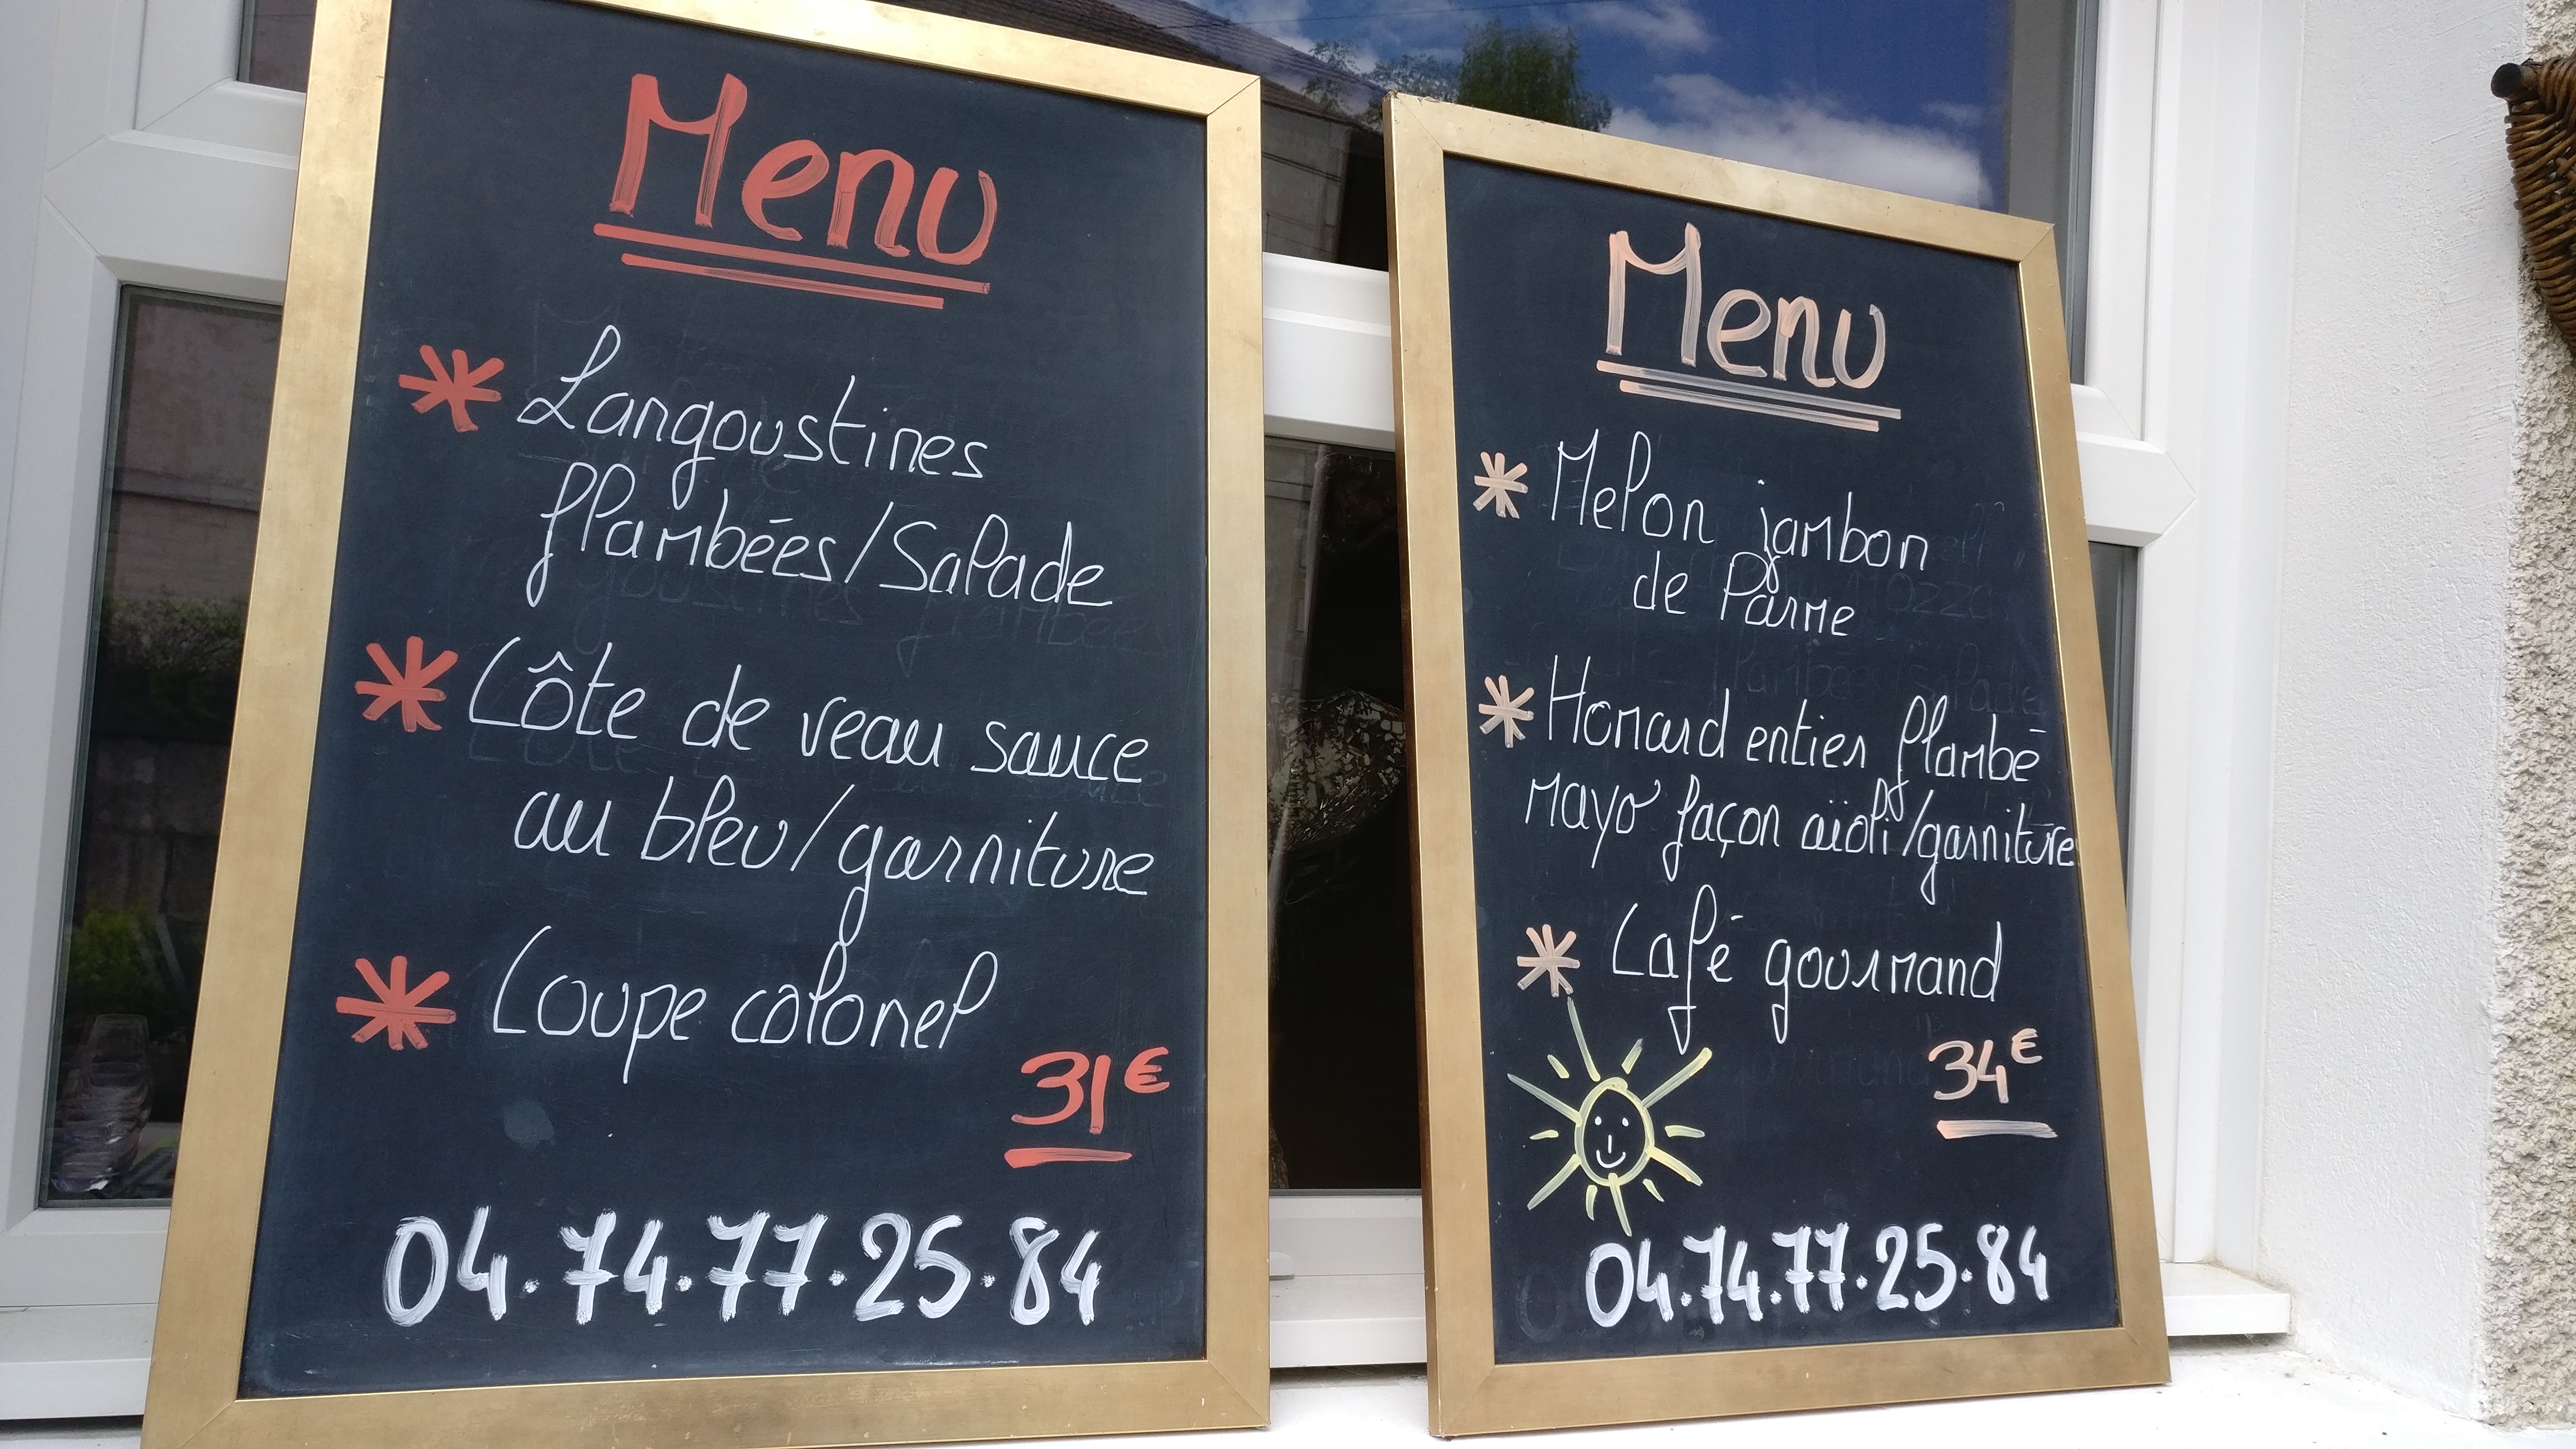 Menu
* Langoustines
flambées/Salade
* Côte de veau sauce
au bleu/garniture
* Coupe colonel
31€
04.74.77.25.84
Menu
* Melon jambon
de Parme
* Homard entier flambé
mayo façon aïoli/garniture
* Café gourmand
34€
04.74.77.25.84